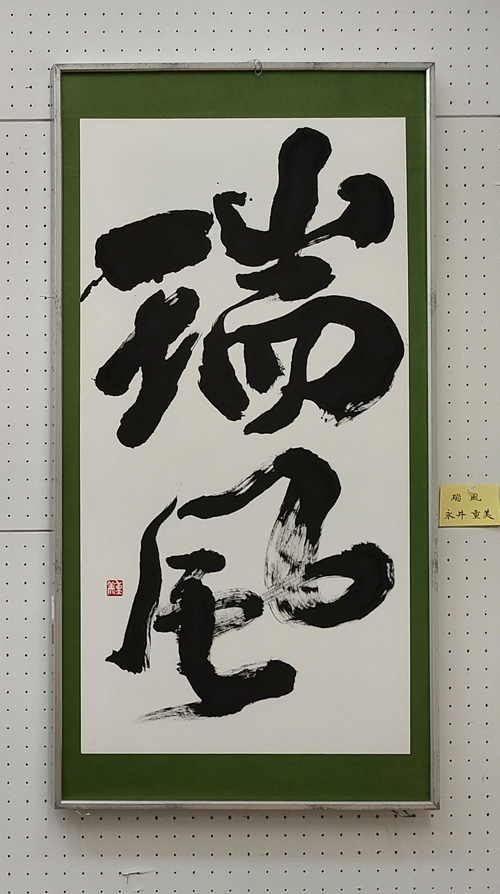 瑞
風
瑞風
永井重美